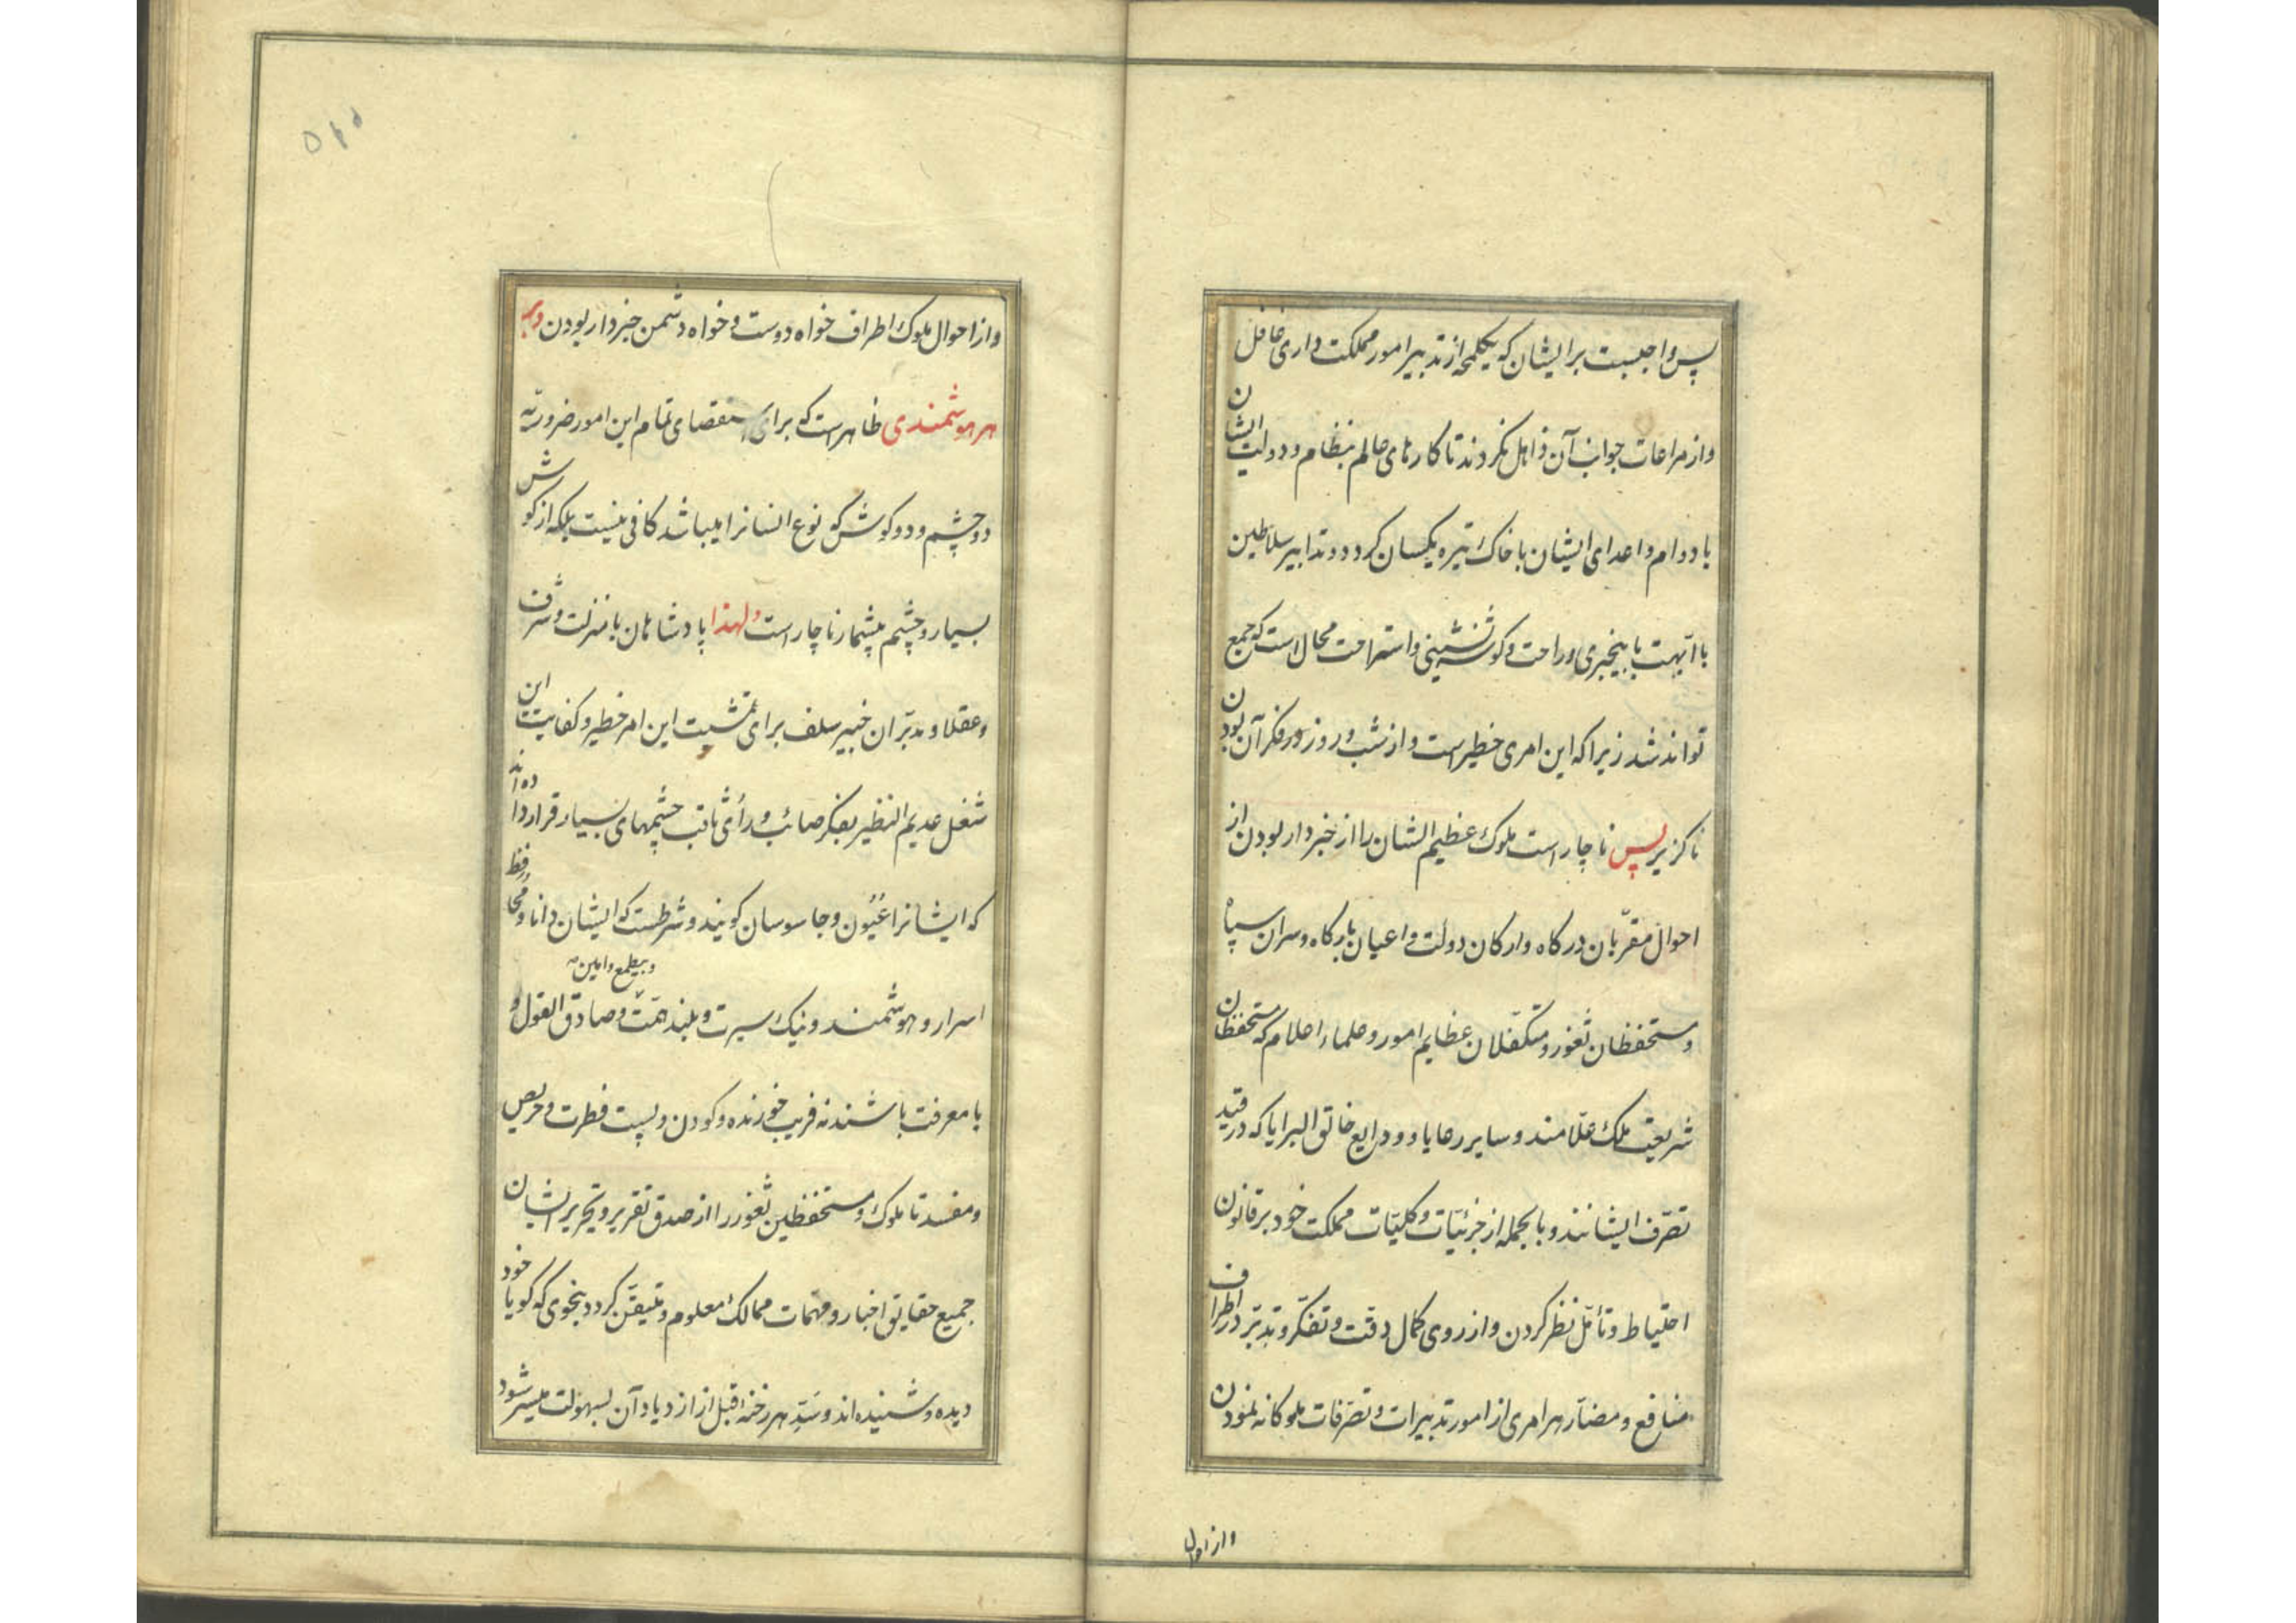 پس واجبست برایشان که یکلمحه از تدبیر امور مملکت داری غافل
و از مراعات جوانب آن ذاهل نکردند تا کارهای عالم بنظام و دولت ایشان
با دوام و اعدای ایشان با خاک تیره یکسان کردد و تدابیر سلاطین
با ابهت با بیخبری و راحت و کوشه نشینی و استراحت محال است که جمع
تواند شد زیرا که این امری خطیر است و از شب و روز در فکر آن بودن
ناکزیر پس ناچار است ملوک عظیم الشان را از خبردار بودن از
احوال مقرّبان درکاه و ارکان دولت و اعیان بارکاه و سران سپاه
و مستحفظان ثغور و متکفّلان عظایم امور و علماء اعلام که مستحفظان
شریعت ملک علّامند و سایر رعایا و ودایع خالق البرایا که در قید
تصرّف ایشانند و بالجمله از جزئیّات و کلیّات مملکت خود بر قانون
احتیاط و تأمّل نظر کردن و از روی کمال دقت و تفکّر و تدبّر در اطراف
منافع و مضارّ هر امری از امور تدبیرات و تصرّفات ملوکانه نمودن
و از احوال
و از احوال ملوک اطراف خواه دوست و خواه دشمن خبردار بودن و بر
هر هوشمندی ظاهر است که برای استقصای تمام این امور ضروریّه
دو چشم و دو کوش که نوع انسانرا میباشد کافی نیست بلکه از کوش
بسیار و چشم بیشمار ناچار است و لهذا پادشاهان با منزلت و شرف
و عقلا و مدبّران خبیر سلف برای تمشیت این امر خطیر و کفایت این
شغل عدیم النظیر بفکر صائب و رأی ثاقب چشمهای بسیار قرار داده اند
که ایشانرا عُیُون و جاسوسان کویند و شرطست که ایشان دانا و محافظ
و بیطمع و امین
اسرار و هوشمند و نیک سیرت و بلند همّت و صادق القول و
با معرفت باشند نه فریب خورنده و کودن و پست فطرت و حریص
و مفسد تا ملوک و مستحفظین ثغور را از صدق تقریر و تحریر ایشان
جمیع حقایق اخبار و مهمّات ممالک معلوم و متیقّن کردد بنحوی که کویا خود
دیده و شنیده اند و سَدِّ هر رخنه قبل از ازدیاد آن بسهولت میسّر شود